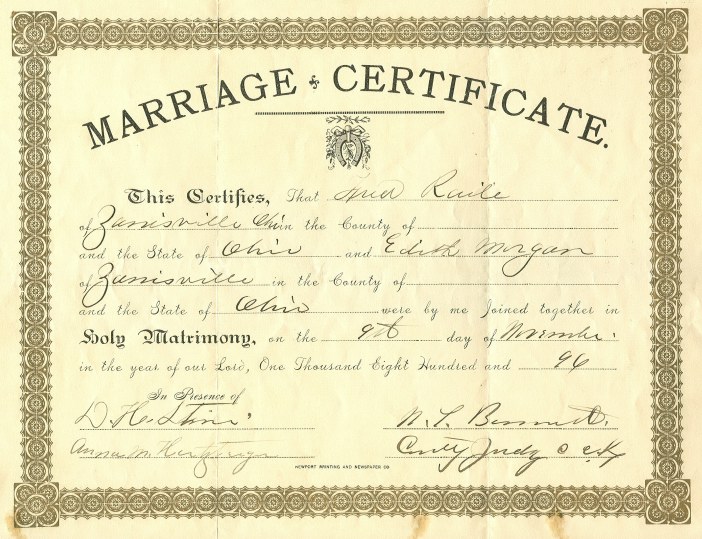 MARRIAGE CERTIFICATE.
This Certifies, That Fred Raile
of Zanisville Ohio in the County of
and the State of Ohio and Edith Morgan
of Zanisville in the County of
and the State of Ohio were by me Joined together in
Holy Matrimony, on the 9th day of November.
in the year of our Lord, One Thousand Eight Hundred and 96
In Presence of
D. H.
N. L. Bennett.
Anna M.
County Judg
NEWPORT PRINTING AND NEWSPAPER CO